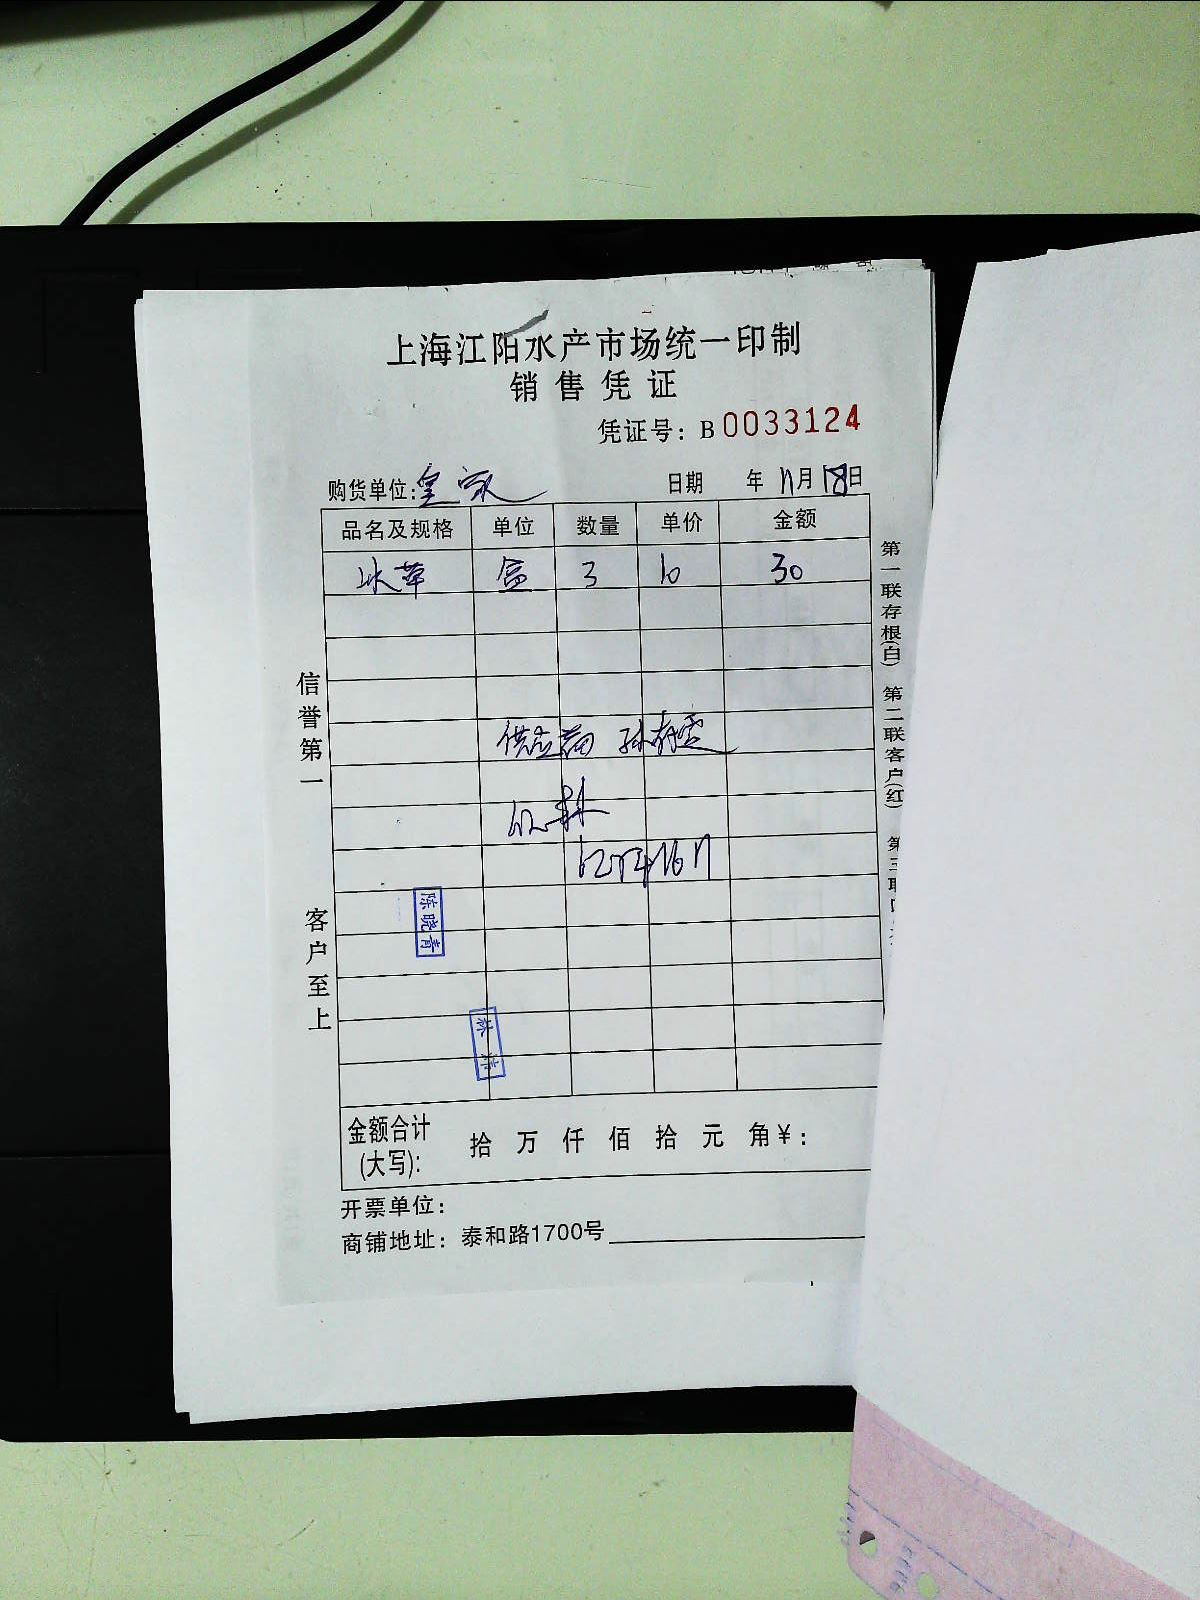 上海江阳水产市场统一印制
销售凭证
凭证号: B 0033124
购货单位: 皇家 日期 年 11月 18日
品名及规格 单位 数量 单价 金额
冰草 盒 3 10 30
供应商
信誉第一
客户至上
第一联存根(白) 第二联客户(红) 第三联
陈晓青
金额合计(大写): 拾 万 仟 佰 拾 元 角 ¥:
开票单位:
商铺地址: 泰和路1700号